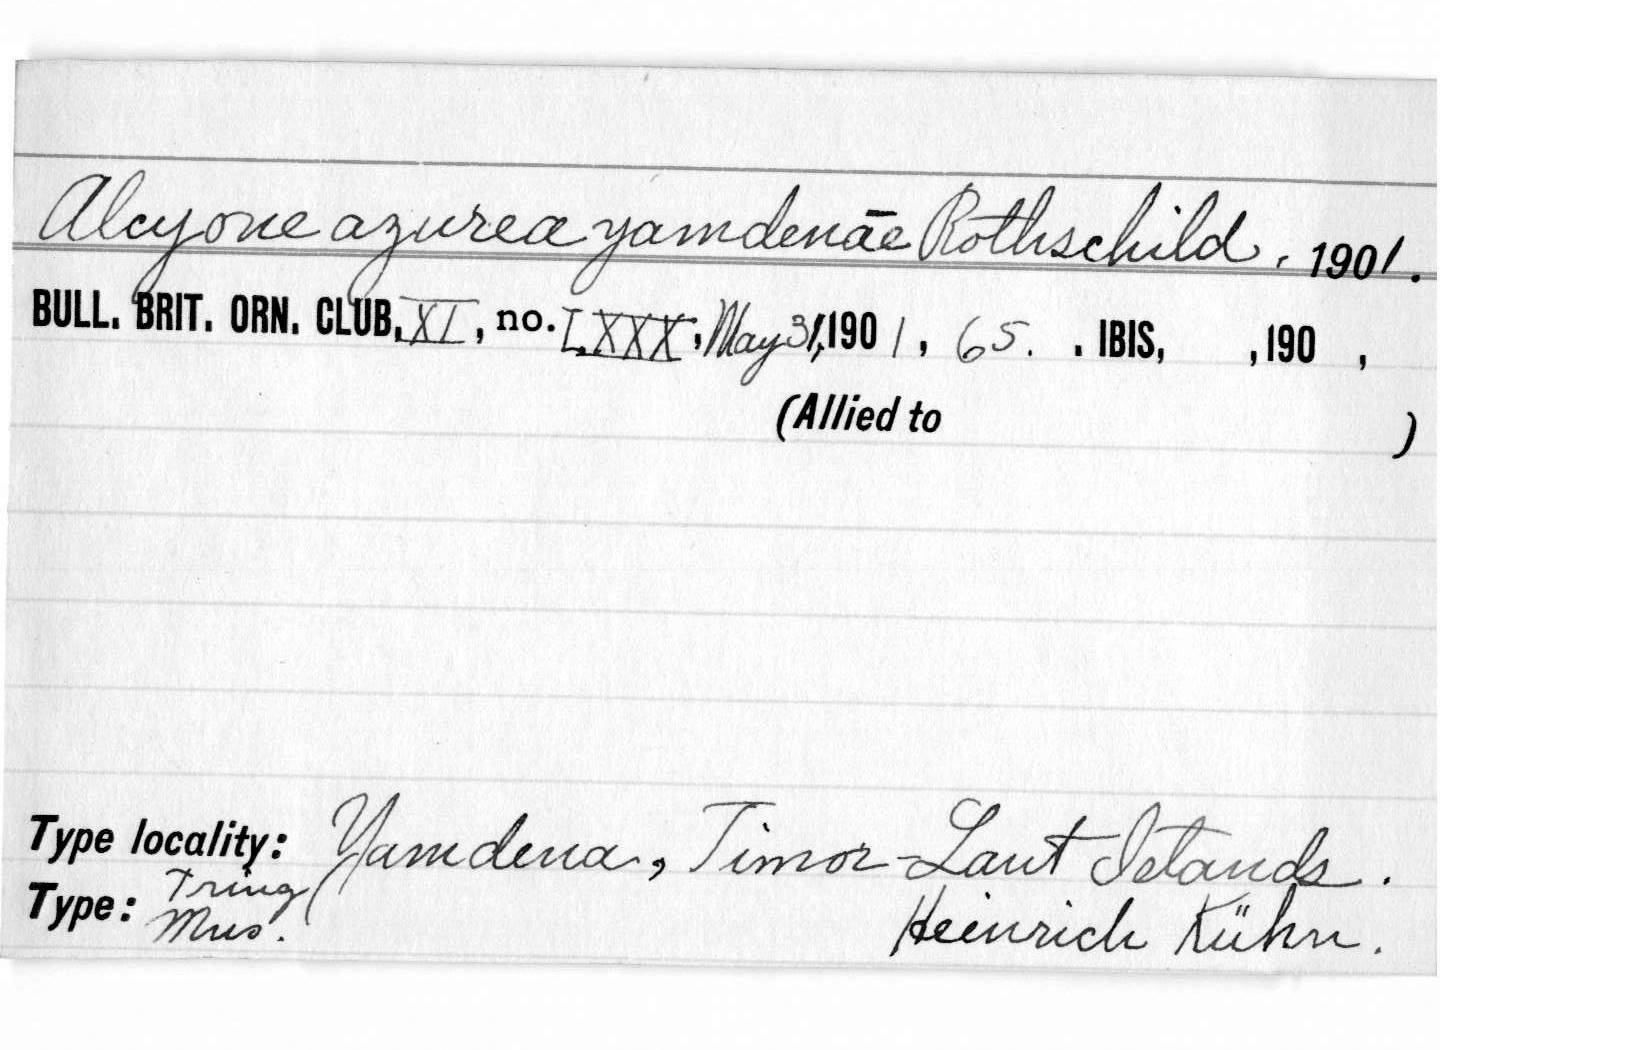 Alcyone azurea yamdenāe Rothschild, 1901.
BULL. BRIT. ORN. CLUB, XI, no. LXXX, May 31, 1901, 65. . IBIS, , 190 ,
(Allied to )
Type locality: Yamdena, Timor-Laut Islands.
Type: Tring Mus. Heinrich Kühn.